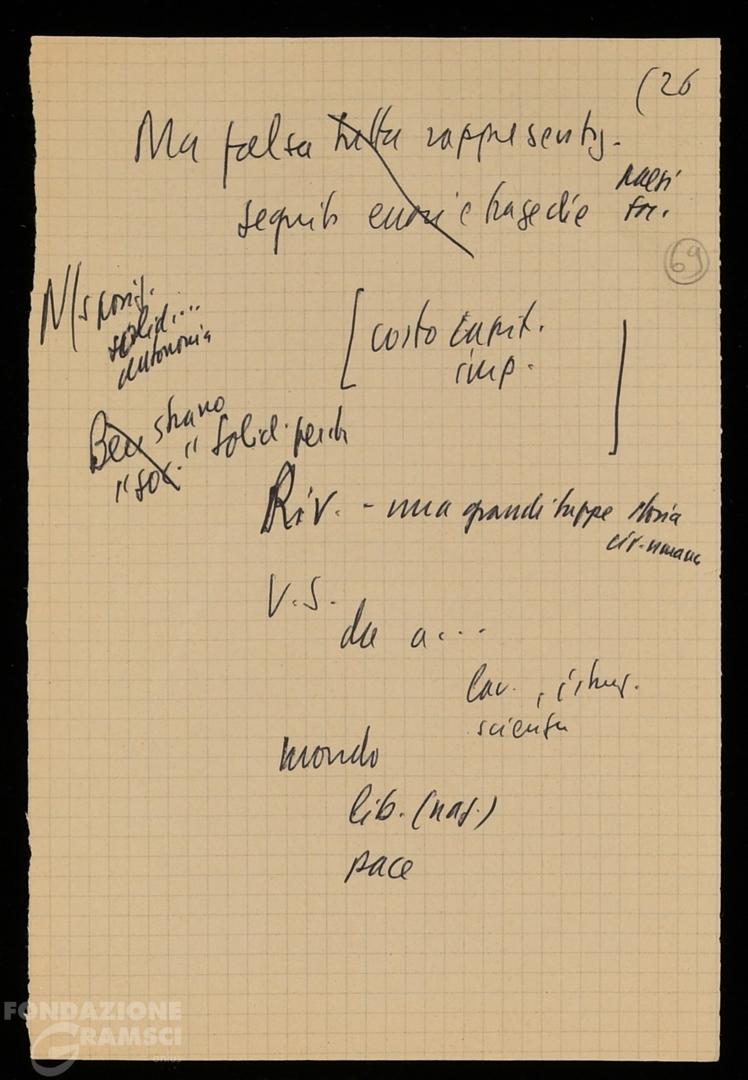 (26
Ma falsa tutta rappresentaz.
seguito errori e tragedie paesi
soc.
69
N/s posiz.
solid....
autonomia
[costo capit.
imp.]
Ben strano
"soc." solid. perch
Riv. - una grandi tappe storia
civ. umana
V.S.
da a...
lav., istruz.
scienza
mondo
lib. (naz.)
pace
FONDAZIONE
GRAMSCI
onlus